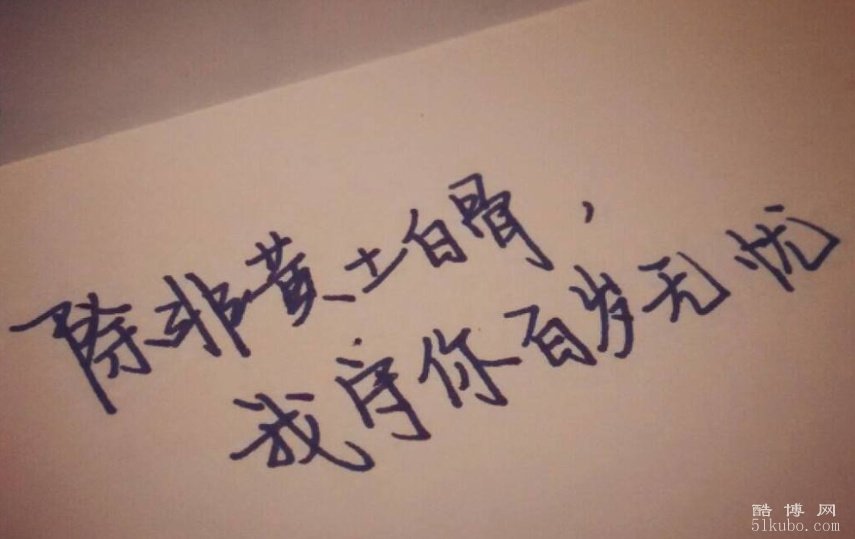 除非黄土白骨，
我守你百岁无忧
酷博网
51kubo.com